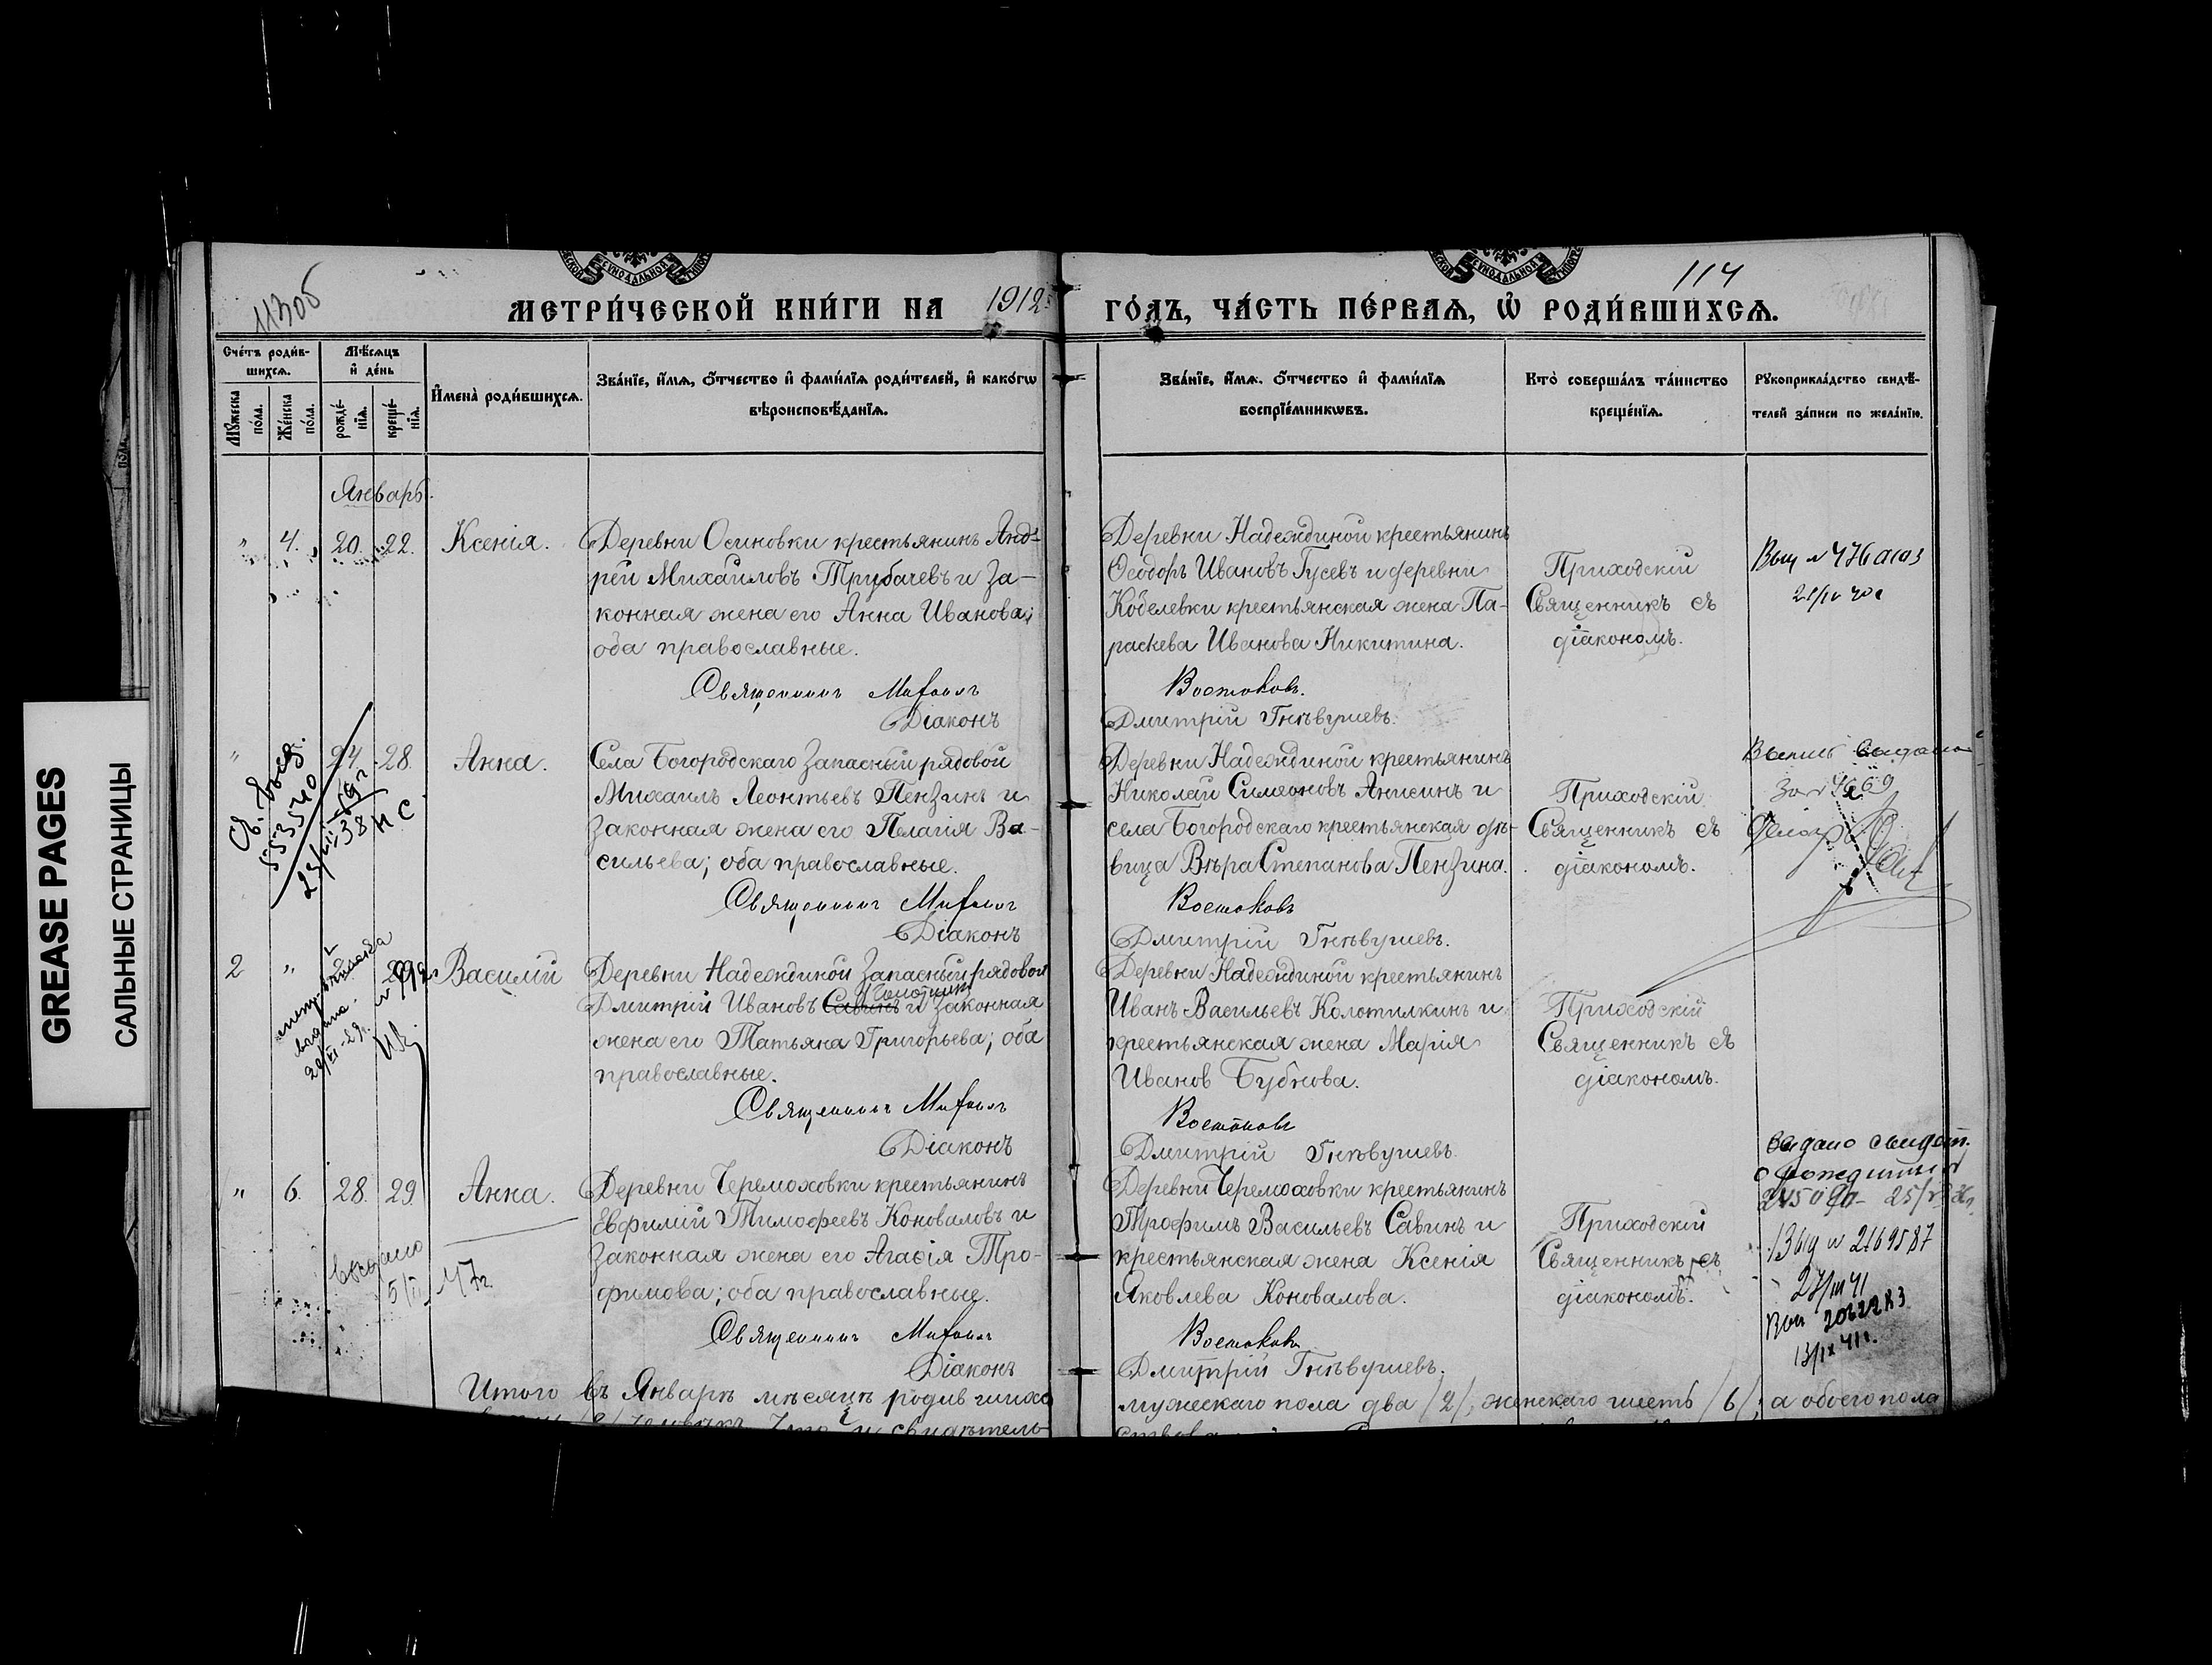 GREASE PAGES
САЛЬНЫЕ СТРАНИЦЫ
114
МЕТРИ́ЧЕСКОЙ КНИ́ГИ НА 1912 ГО́ДЪ, ЧА́СТЬ ПЕ́РВАѦ, Ѡ РОДИ́ВШИХСѦ.
Сче́тъ роди́в-
шихсѧ.
Мѣ́сѧцъ
и҆ де́нь
Мꙋ́жеска
по́ла.
Же́нска
по́ла.
рожде́-
нїѧ.
креще́-
нїѧ.
И҆мена̀ роди́вшихсѧ.
Зва́нїе, и҆́мѧ, ѻ҆́тчество и҆ фами́лїѧ роди́телей, и҆ како́гѡ
вѣроисповѣ́данїѧ.
Зва́нїе, и҆́мѧ, ѻ҆́тчество и҆ фами́лїѧ
воспрїе́мникѡвъ.
Кто̀ соверша́лъ та́инство
креще́нїѧ.
Рꙋкоприкла́дство свидѣ́-
телей за́писи по жела́нїю.
Январь.
" 4. 20. 22. Ксенія.
Деревни Осиновки крестьянинъ Анд-
рей Михайловъ Трубачевъ и за-
конная жена его Анна Иванова;
оба православные.
Священникъ Михаилъ
Діаконъ
Деревни Надеждиной крестьянинъ
Ѳеодоръ Ивановъ Гусевъ и деревни
Кобелевки крестьянская жена Па-
раскева Иванова Никитина.
Востоковъ.
Дмитрій Гнѣвушевъ.
Приходскій
Священникъ съ
діакономъ.
" 24. 28. Анна.
Св. выд.
553540
Села Богородскаго запасный рядовой
Михаилъ Леонтьевъ Пензинъ и
законная жена его Пелагія Ва-
сильева; оба православные.
Священникъ Михаилъ
Діаконъ
Деревни Надеждиной крестьянинъ
Николай Симеоновъ Анисинъ и
села Богородскаго крестьянская дѣ-
вица Вѣра Степанова Пензина.
Востоковъ
Дмитрій Гнѣвушевъ.
Приходскій
Священникъ съ
діакономъ.
2 " Василій
Деревни Надеждиной запасный рядовой
Дмитрій Ивановъ Савинъ и законная
жена его Татьяна Григорьева; оба
православные.
Священникъ Михаилъ
Діаконъ
Деревни Надеждиной крестьянинъ
Иванъ Васильевъ Колотилкинъ и
крестьянская жена Марія
Иванов Бубнова.
Востоковъ
Дмитрій Гнѣвушевъ.
Приходскій
Священникъ съ
діакономъ.
" 6. 28. 29. Анна.
выдано
Деревни Черемоховки крестьянинъ
Евфимій Тимофеевъ Коноваловъ и
законная жена его Агаѳія Тро-
фимова; оба православные.
Священникъ Михаилъ
Діаконъ
Деревни Черемоховки крестьянинъ
Трофимъ Васильевъ Савинъ и
крестьянская жена Ксенія
Яковлева Коновалова.
Востоковъ
Дмитрій Гнѣвушевъ.
Приходскій
Священникъ съ
діакономъ.
Выдано свидет.
о рождении
Итого въ Январѣ мѣсяцѣ родившихся мужескаго пола два /2/, женскаго шесть /6/; а обоего пола